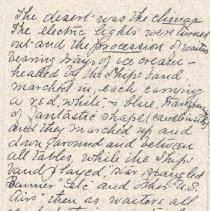 The desert was the climax
The electric lights were turned
out and the procession of waiters
bearing trays of ice cream
headed by the Ships band
marched in, each carrying
a red, white & blue,
of fantastic shape (candle inside)
and they marched up and
down around and between
all tables, while the Ships
band played, Star Spangled
Banner etc and other U.S.
airs, then as waiters all